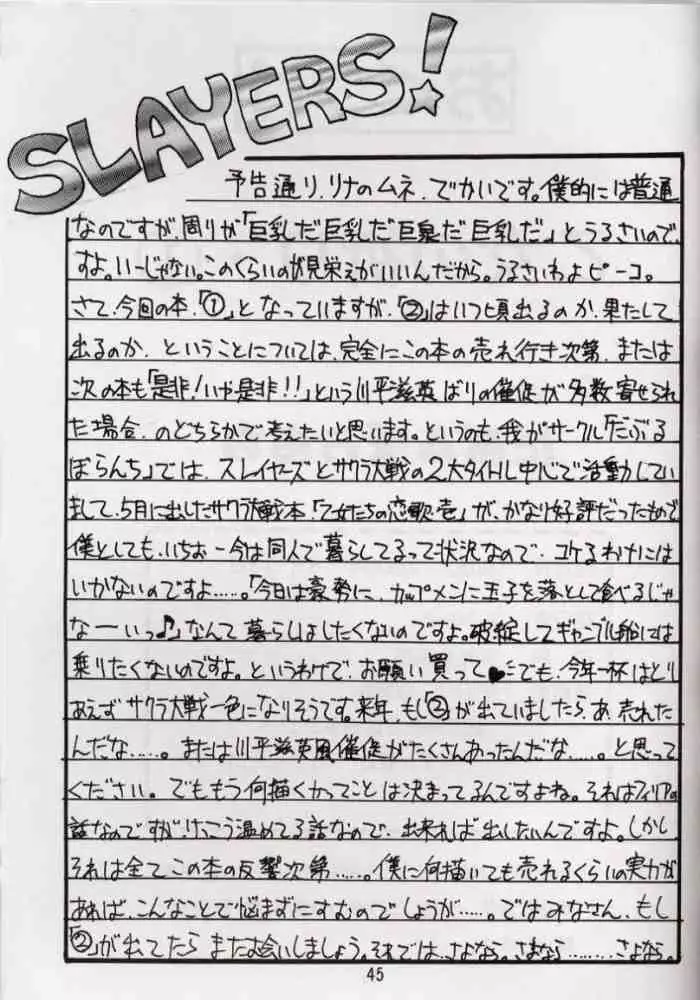 SLAYERS!
予告通り、リナのムネ、でかいです。僕的には普通
なのですが、周りが「巨乳だ巨乳だ巨泉だ巨乳だ」とうるさいので
すよ。いーじゃない。このくらいのが見栄えがいいんだから。うるさいわよピーコ。
さて、今回の本、「①」となっていますが、「②」はいつ頃出るのか、果たして
出るのか、ということについては、完全にこの本の売れ行き次第、または
次の本も「是非!いや是非!!」という川平滋英ばりの催促が多数寄せられ
た場合、のどちらかで考えたいと思います。というのも、我がサークル「だぶる
ぼらんち」では、スレイヤーズとサクラ大戦の2大タイトル中心で活動してい
まして、5月に出したサクラ大戦本、「乙女たちの恋歌・壱」が、かなり好評だったもので
僕としても、いちお一今は同人で暮らしてるって状況なので、コケるわけには
いかないのですよ……。「今日は豪勢に、カップメンに玉子を落として食べるじゃ
なーいっ♪」なんて暮らしはしたくないのですよ。破綻してギャンブル船には
乗りたくないのですよ。というわけで、お願い買って♥でも、今年一杯はとり
あえずサクラ大戦一色になりそうです。来年、もし「②」が出ていましたら、あ、売れた
んだな……。または川平滋英風催促がたくさんあったんだな……。と思って
ください。でももう何描くかってことは決まってるんですよね。それはフィリアの
話なのですが、けっこう温めてる話なので、出来れば出したいんですよ。しかし
それは全てこの本の反響次第……。僕に何描いても売れるくらいの実力が
あれば、こんなことで悩まずにすむのでしょうが……。ではみなさん、もし
「②」が出てたらまたお会いしましょう。それでは、さよなら。さよなら………さよなら。
45